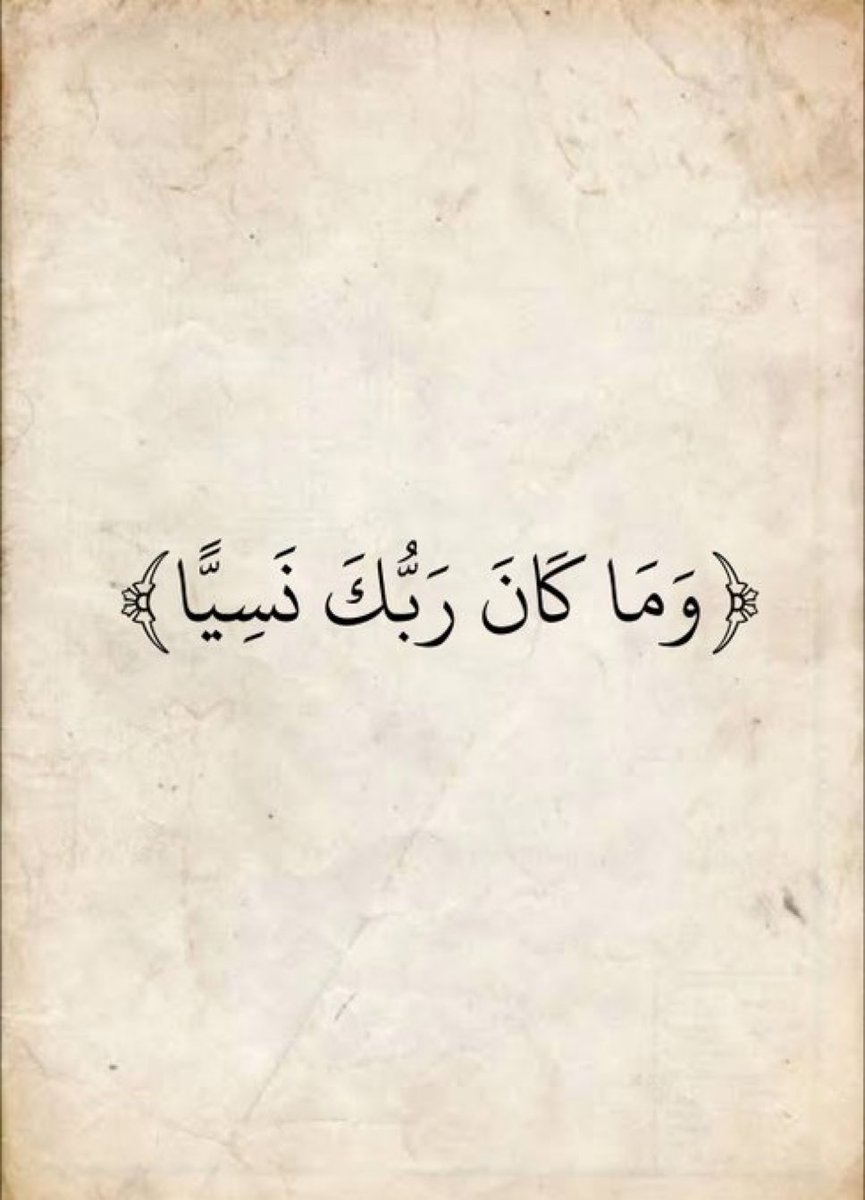 ﴿وَمَا كَانَ رَبُّكَ نَسِيًّا﴾